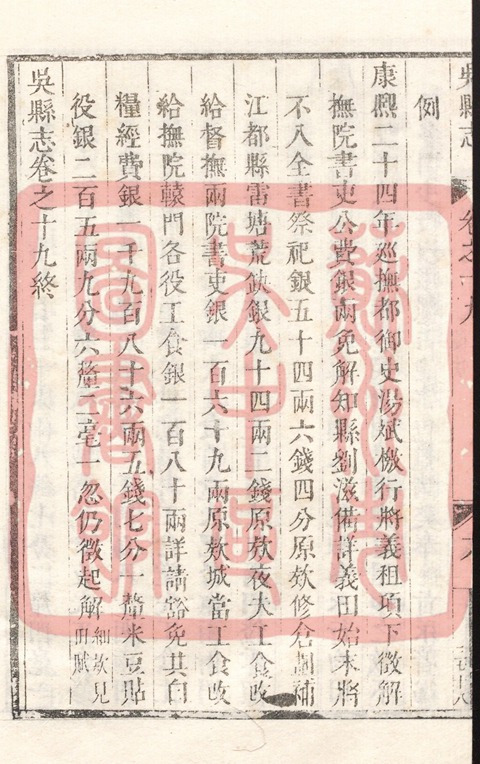 吳縣志
例
康熙二十四年巡撫都御史湯斌檄行將義租項下徵解
撫院書吏公費銀兩免解知縣劉滋備詳義田始末將
不入全書祭祀銀五十四兩六錢四分原欵修倉剷補
江都縣雷塘荒缺銀九十四兩二錢原欵夜夫工食改
給督撫兩院書吏銀一百六十九兩原欵城當工食改
給撫院轅門各役工食銀一百八十兩詳請豁免其白
糧經費銀一千九百八十六兩五錢七分一釐米豆貼
役銀二百五兩九分六釐二毫一忽仍徵起解細欵見田賦
吳縣志卷之十九終